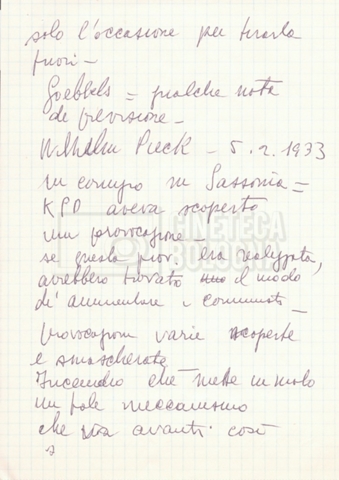 solo l'occasione per tirarla
fuori –
Goebbels = qualche nota
di previsione –
Wilhelm Pieck – 5.2.1933
un comizio in Sassonia =
KPD aveva scoperto
una provocazione –
se questa prov. era realizzata,
avrebbero trovato il modo
di ammontare i comunisti –
Provocazioni varie scoperte
e smascherate
Incendio che mette in moto
un tale meccanismo
che va avanti così
CINETECA
BOLOGNA